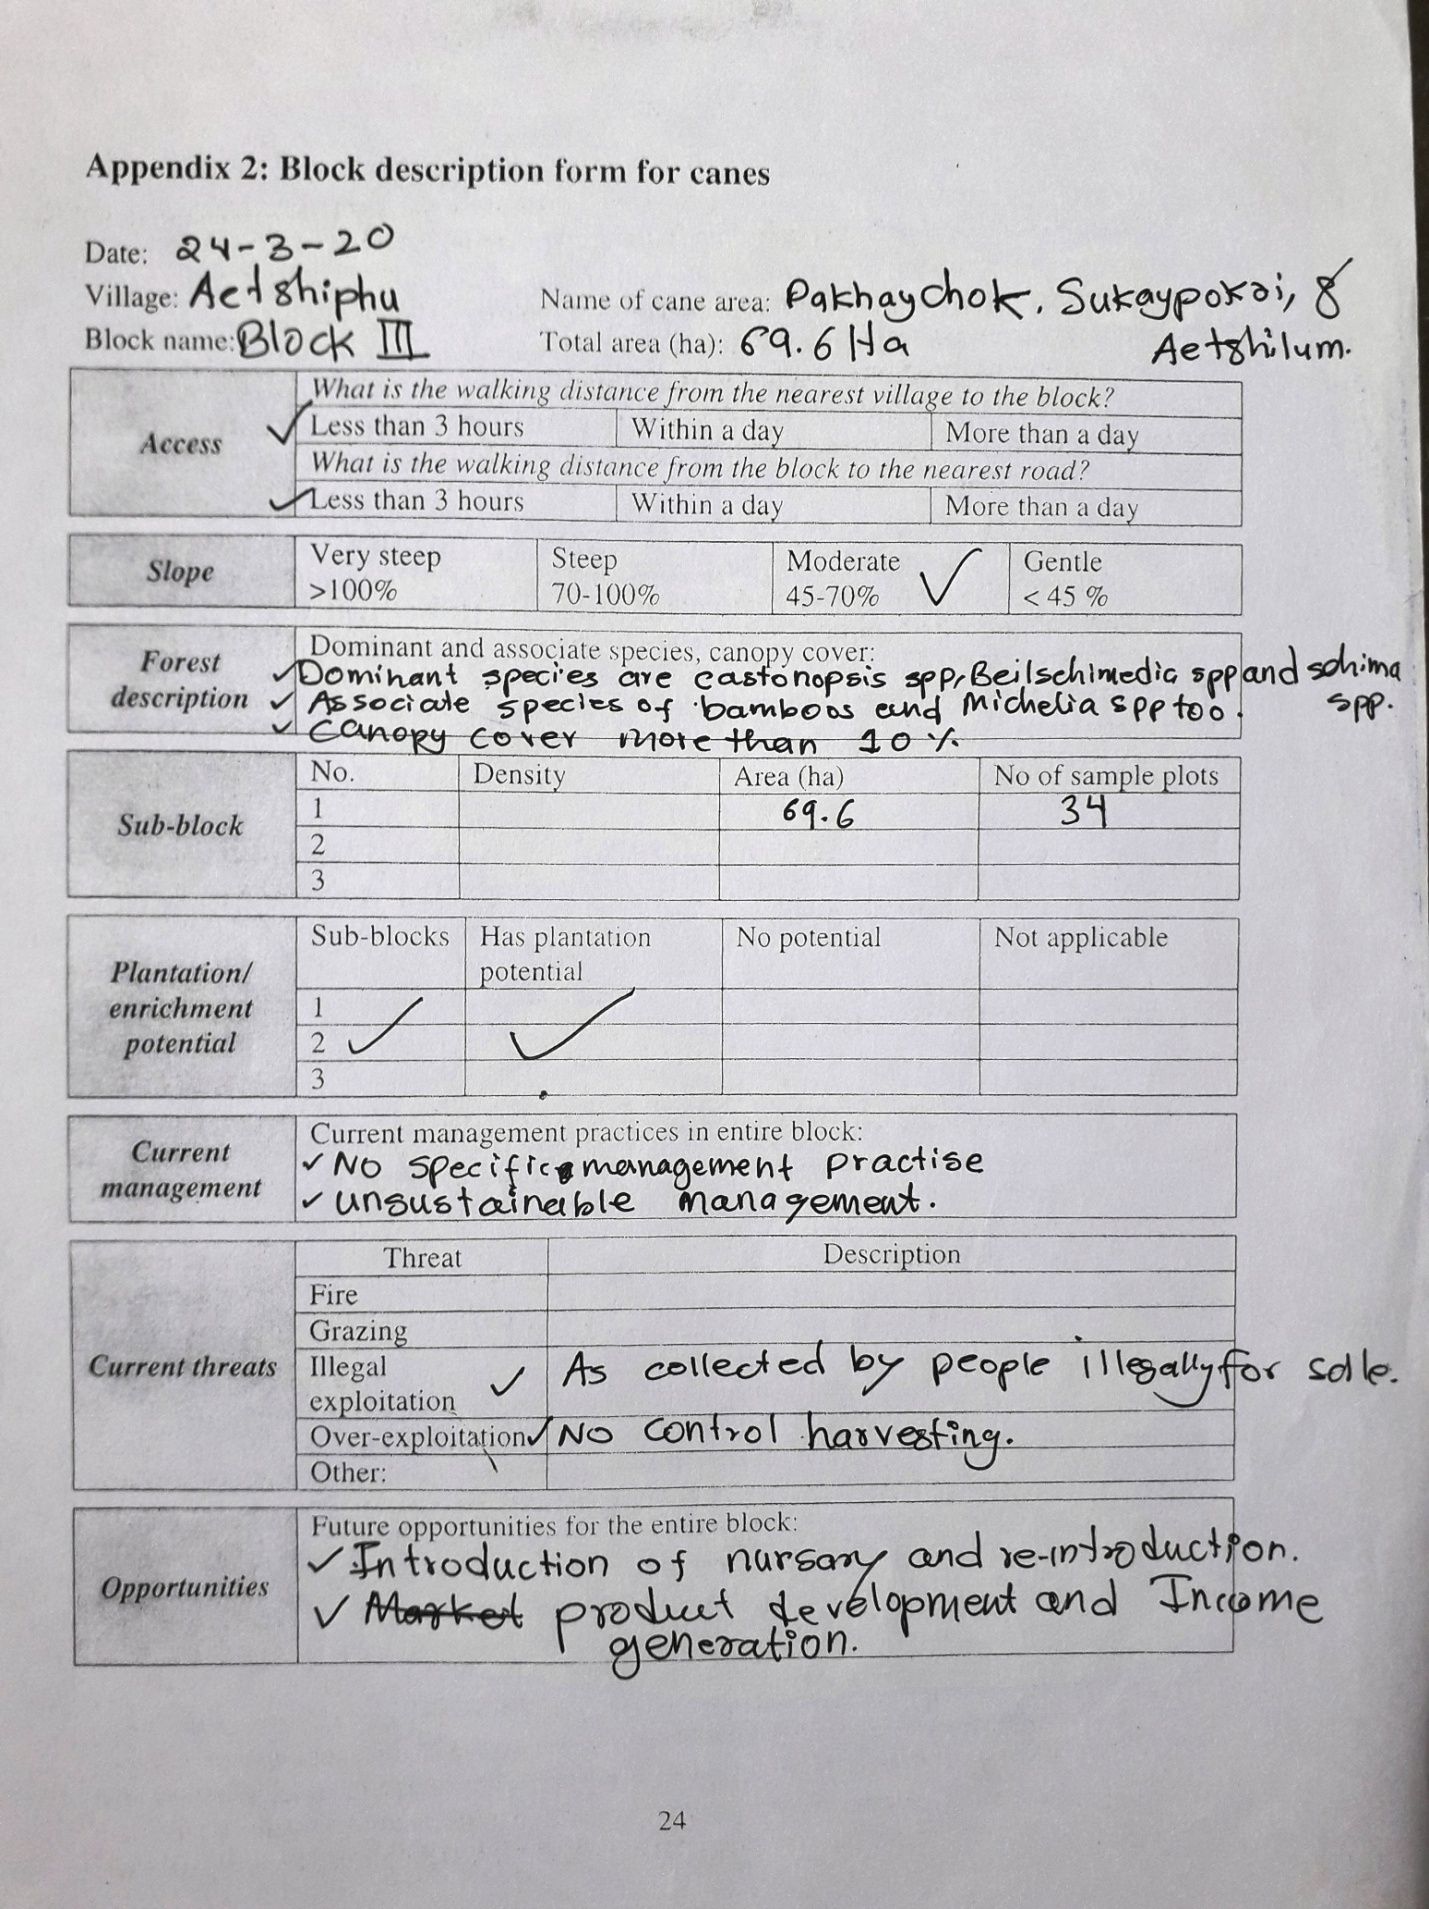 Appendix 2: Block description form for canes
Date: 24-3-20
Village: Aetshiphu Name of cane area: Pakhaychok, Sukaypokai, &
Block name: Block III Total area (ha): 69.6 Ha Aetshilum.
What is the walking distance from the nearest village to the block?
Access ✓ Less than 3 hours Within a day More than a day
What is the walking distance from the block to the nearest road?
✓ Less than 3 hours Within a day More than a day
Slope Very steep Steep Moderate ✓ Gentle
>100% 70-100% 45-70% < 45 %
Forest description Dominant and associate species, canopy cover:
✓ Dominant species are castonopsis spp, Beilschimedia spp and schima spp.
✓ Associate species of bamboos and Michelia spp too.
✓ Canopy cover more than 10 %
Sub-block No. Density Area (ha) No of sample plots
1 69.6 34
2
3
Plantation/ enrichment potential Sub-blocks Has plantation potential No potential Not applicable
1
2 ✓ ✓
3
Current management Current management practices in entire block:
✓ No specific management practise
✓ unsustainable management.
Current threats Threat Description
Fire
Grazing
Illegal exploitation ✓ As collected by people illegally for sale.
Over-exploitation ✓ No control harvesting.
Other:
Opportunities Future opportunities for the entire block:
✓ Introduction of nursary and re-introduction.
✓ Market product development and Income
generation.
24